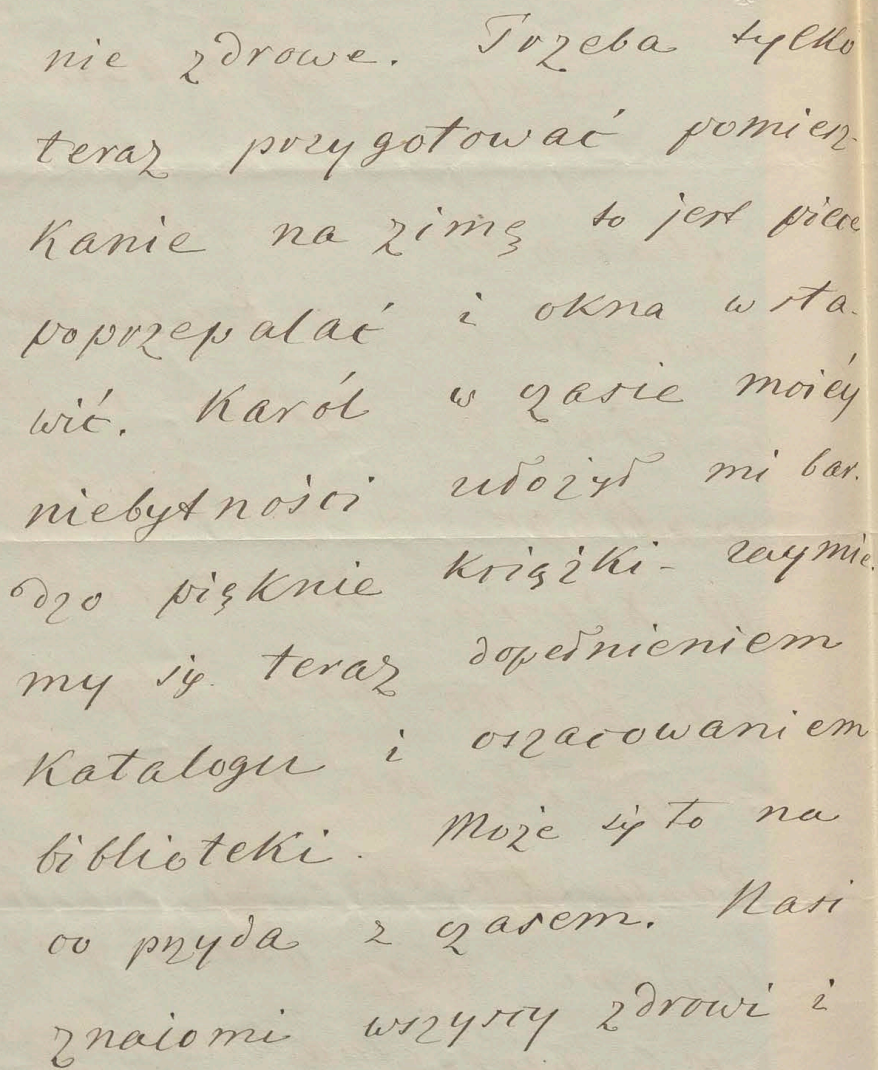 nie zdrowe. Trzeba tylko
teraz przygotować pomiesz-
kanie na zimę to jest piece
poprzepalać i okna wsta-
wić. Karól w czasie moiéy
niebytności ułożył mi bar-
dzo pięknie książki - zaymie-
my się teraz dopełnieniem
Katalogu i oszacowaniem
biblioteki. Może się to na
co przyda z czasem. Nasi
znaiomi wszyscy zdrowi i